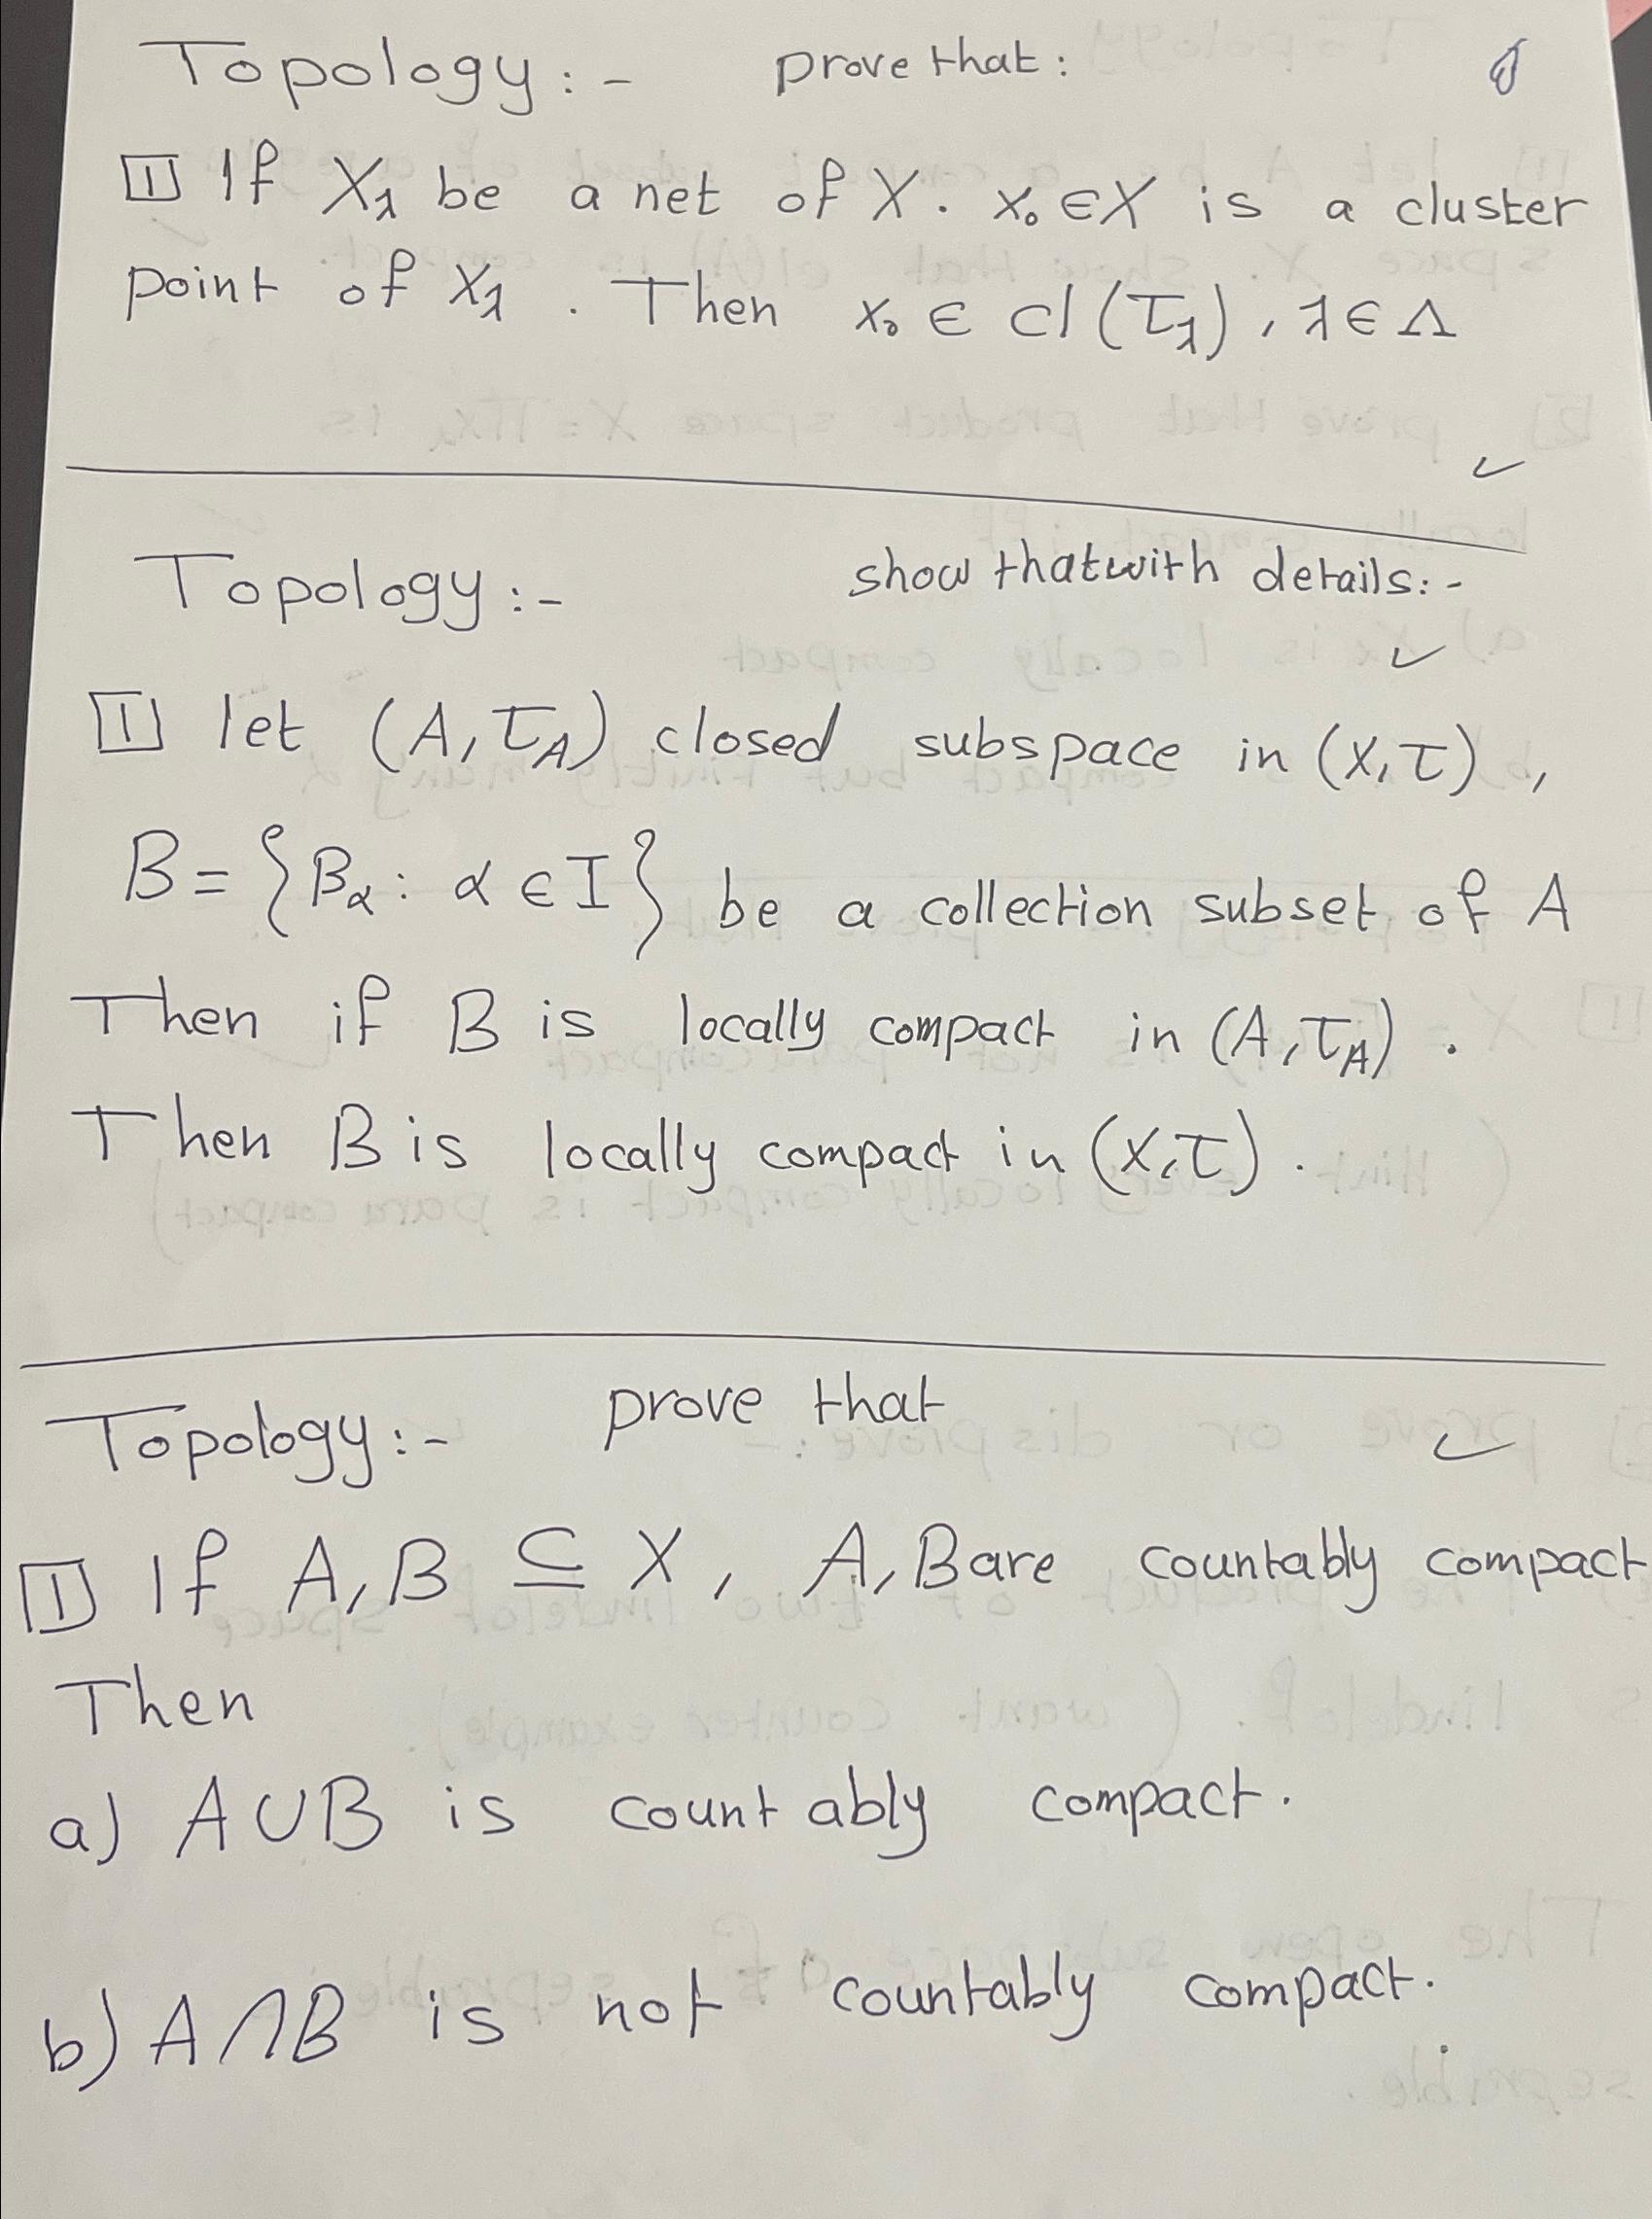 Topology:- prove that:
1 If Xλ be a net of X. x₀ ∈ X is a cluster
point of Xλ. Then x₀ ∈ cl(Tλ), λ ∈ Λ
Topology:- show that with details:-
1 let (A, τ_A) closed subspace in (X, τ),
B = {Bα : α ∈ I} be a collection subset of A
Then if B is locally compact in (A, τ_A).
Then B is locally compact in (X, τ).
Topology:- prove that
1 If A, B ⊆ X, A, B are countably compact
Then
a) A∪B is countably compact.
b) A∩B is not countably compact.